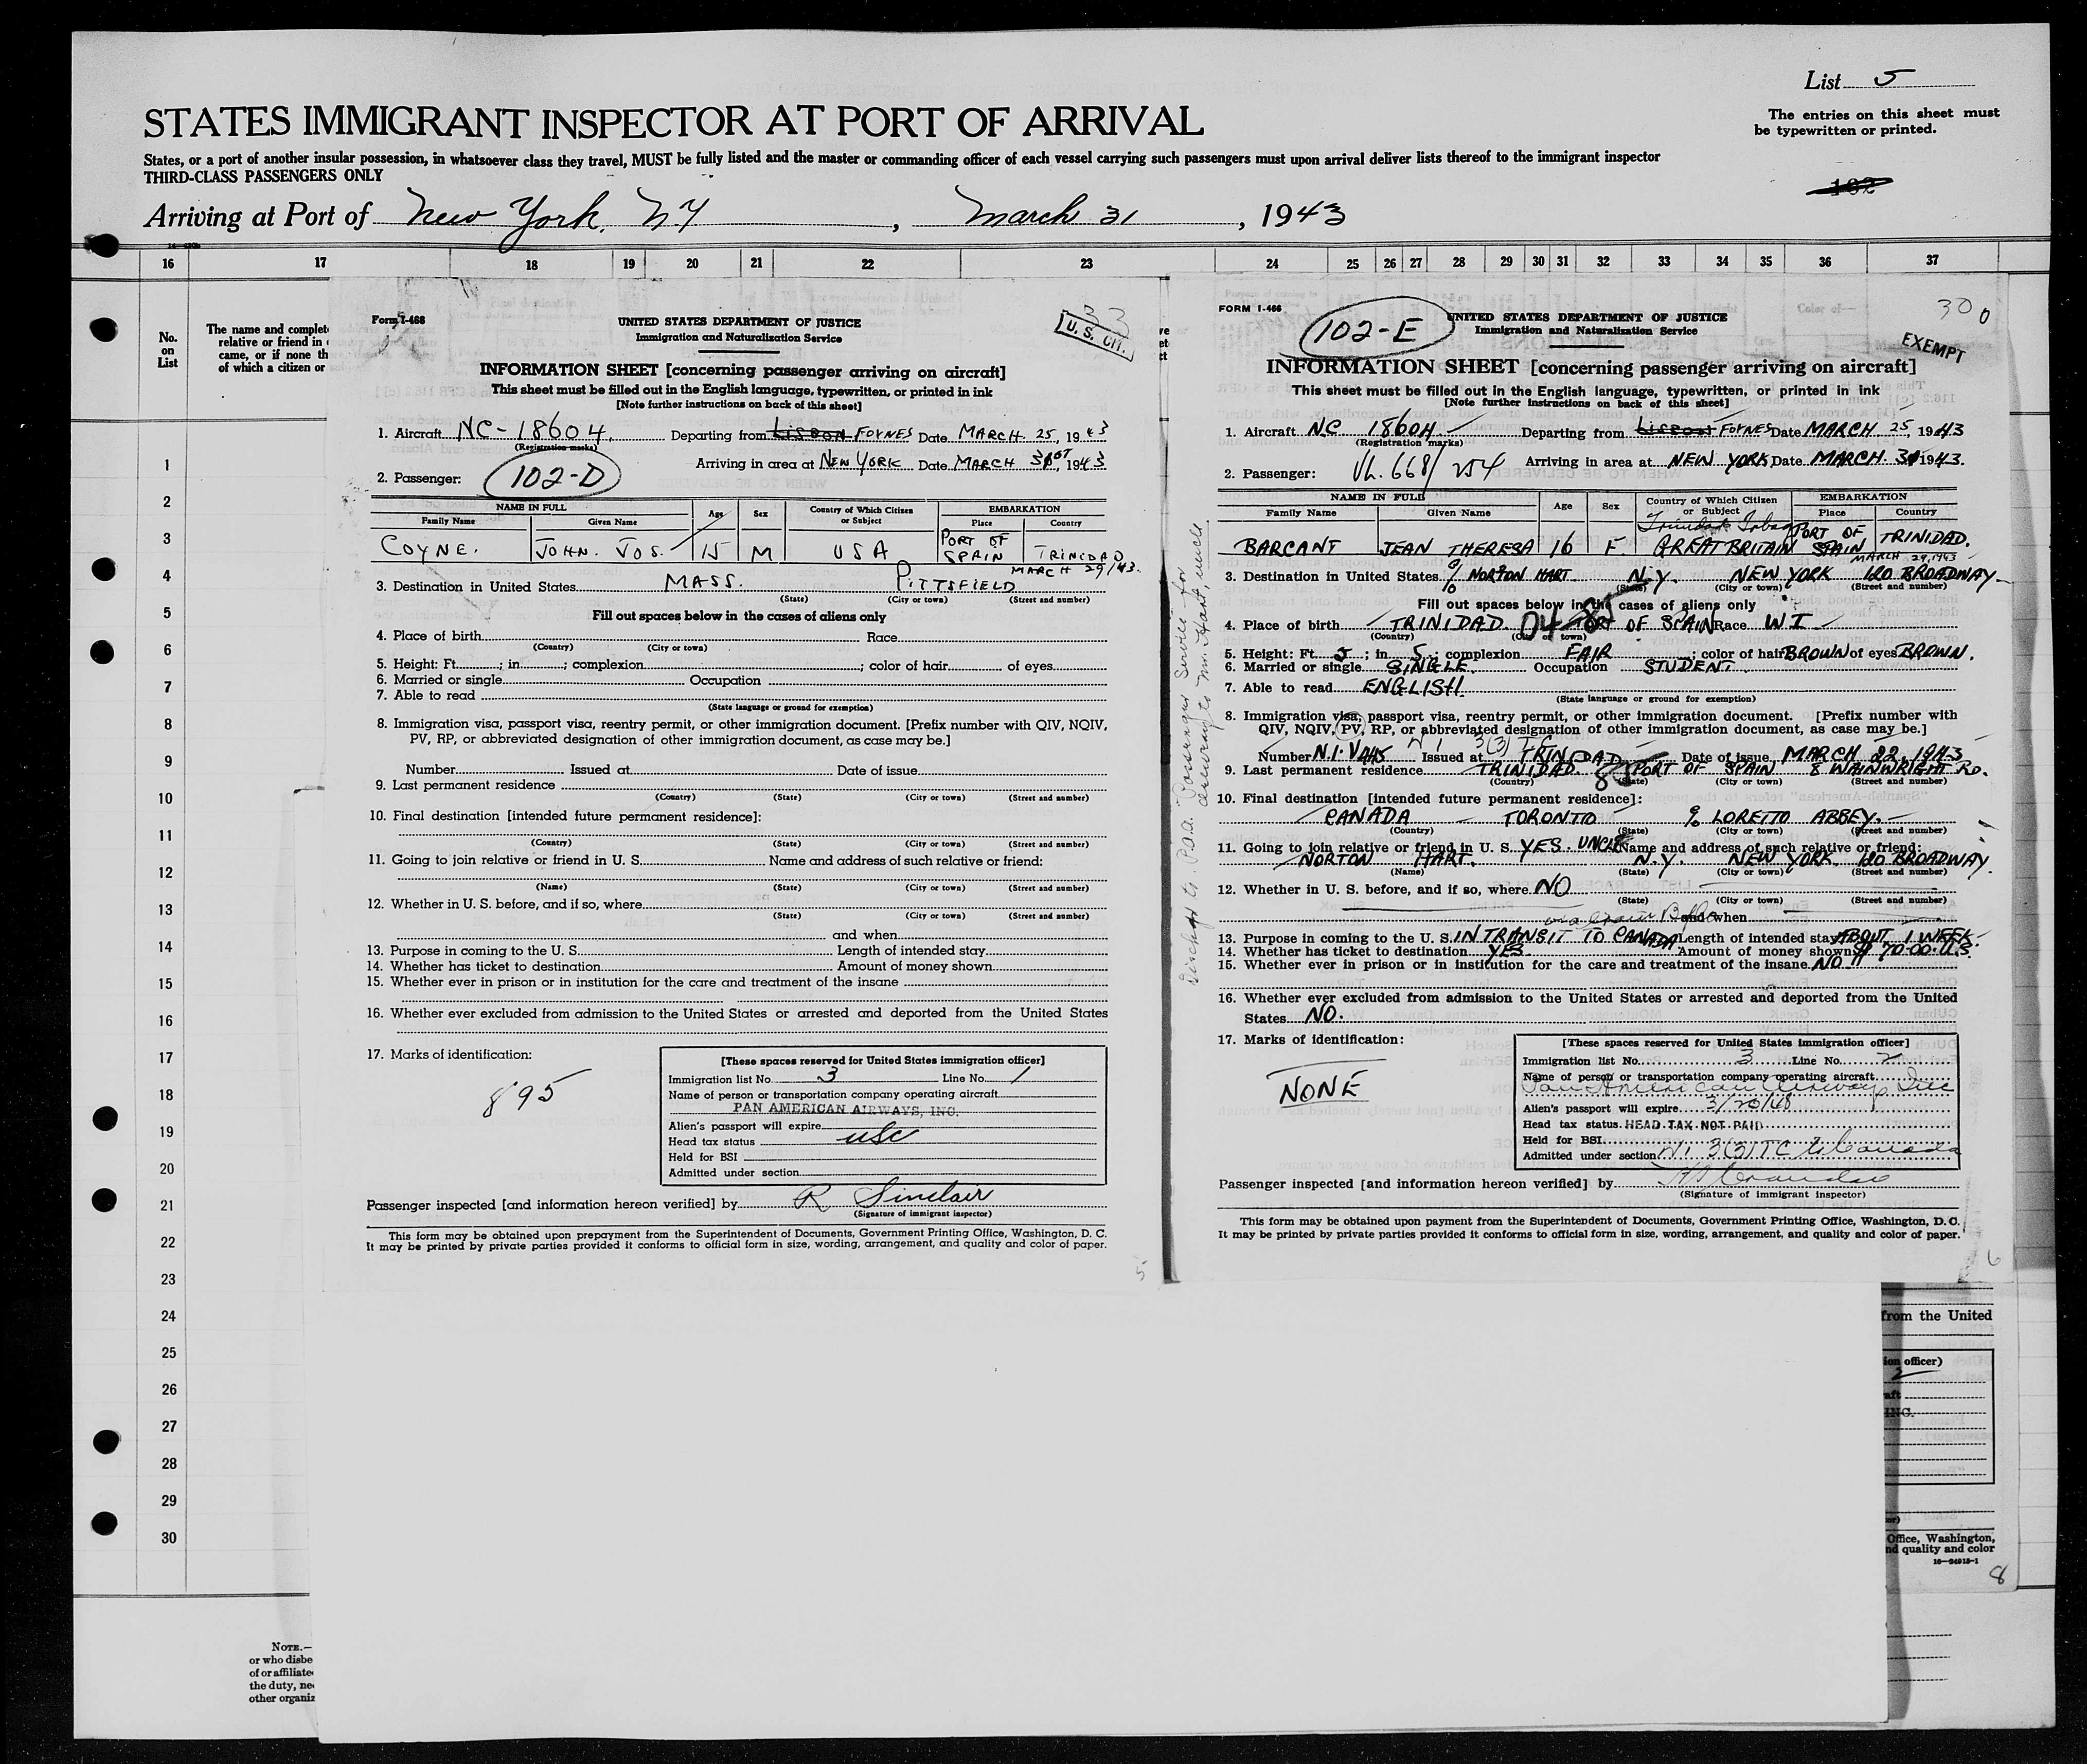 List 5
STATES IMMIGRANT INSPECTOR AT PORT OF ARRIVAL
The entries on this sheet must
be typewritten or printed.
States, or a port of another insular possession, in whatsoever class they travel, MUST be fully listed and the master or commanding officer of each vessel carrying such passengers must upon arrival deliver lists thereof to the immigrant inspector
THIRD-CLASS PASSENGERS ONLY
102
Arriving at Port of New York, N.Y , March 31 , 1943
16 17 18 19 20 21 22 23 24 25 26 27 28 29 30 31 32 33 34 35 36 37
No.
on
List
The name and complet
relative or friend in
came, or if none th
of which a citizen or
1
2
3
4
5
6
7
8
9
10
11
12
13
14
15
16
17
18
19
20
21
22
23
24
25
26
27
28
29
30
NOTE.—
or who disbe
of or affiliate
the duty, ne
other organiz
Form I-466
UNITED STATES DEPARTMENT OF JUSTICE
Immigration and Naturalization Service
33
U. S. CIT.
INFORMATION SHEET [concerning passenger arriving on aircraft]
This sheet must be filled out in the English language, typewritten, or printed in ink
[Note further instructions on back of this sheet]
1. Aircraft NC-18604. Departing from LISBON FOYNES Date MARCH 25, 1943
(Registration marks)
Arriving in area at NEW YORK Date MARCH 31ST, 1943
2. Passenger: 102-D
NAME IN FULL Age Sex Country of Which Citizen or Subject EMBARKATION
Family Name Given Name Place Country
COYNE. JOHN. JOS. 15 M USA PORT OF SPAIN TRINIDAD
MARCH 29/43.
3. Destination in United States MASS. PITTSFIELD
(State) (City or town) (Street and number)
Fill out spaces below in the cases of aliens only
4. Place of birth Race
(Country) (City or town)
5. Height: Ft. ; in ; complexion ; color of hair of eyes
6. Married or single Occupation
7. Able to read
(State language or ground for exemption)
8. Immigration visa, passport visa, reentry permit, or other immigration document. [Prefix number with QIV, NQIV,
PV, RP, or abbreviated designation of other immigration document, as case may be.]
Number Issued at Date of issue
9. Last permanent residence
(Country) (State) (City or town) (Street and number)
10. Final destination [intended future permanent residence]:
(Country) (State) (City or town) (Street and number)
11. Going to join relative or friend in U. S. Name and address of such relative or friend:
(Name) (State) (City or town) (Street and number)
12. Whether in U. S. before, and if so, where
(State) (City or town) (Street and number)
and when
13. Purpose in coming to the U. S. Length of intended stay
14. Whether has ticket to destination Amount of money shown
15. Whether ever in prison or in institution for the care and treatment of the insane
16. Whether ever excluded from admission to the United States or arrested and deported from the United States
17. Marks of identification:
895
[These spaces reserved for United States immigration officer]
Immigration list No. 3 Line No. 1
Name of person or transportation company operating aircraft
PAN AMERICAN AIRWAYS, INC.
Alien's passport will expire
Head tax status USC
Held for BSI
Admitted under section
Passenger inspected [and information hereon verified] by R Sinclair
(Signature of immigrant inspector)
This form may be obtained upon prepayment from the Superintendent of Documents, Government Printing Office, Washington, D. C.
It may be printed by private parties provided it conforms to official form in size, wording, arrangement, and quality and color of paper.
5
FORM I-466
102-E
UNITED STATES DEPARTMENT OF JUSTICE
Immigration and Naturalization Service
300
EXEMPT
INFORMATION SHEET [concerning passenger arriving on aircraft]
This sheet must be filled out in the English language, typewritten, or printed in ink
[Note further instructions on back of this sheet]
1. Aircraft NC 18604 Departing from LISBON FOYNES Date MARCH 25, 1943
(Registration marks)
2. Passenger: VL. 668/254 Arriving in area at NEW YORK Date MARCH 31 1943.
NAME IN FULL Age Sex Country of Which Citizen or Subject EMBARKATION
Family Name Given Name Place Country
Trinidad Tobago
BARCANT JEAN THERESA 16 F GREAT BRITAIN PORT OF SPAIN TRINIDAD.
MARCH 29, 1943
3. Destination in United States % NORTON HART N.Y. NEW YORK 120 BROADWAY
(State) (City or town) (Street and number)
Fill out spaces below in the cases of aliens only
4. Place of birth TRINIDAD PORT OF SPAIN Race W I
(Country) (City or town)
5. Height: Ft. 5 ; in 5 ; complexion FAIR ; color of hair BROWN of eyes BROWN.
6. Married or single SINGLE Occupation STUDENT
7. Able to read ENGLISH
(State language or ground for exemption)
8. Immigration visa, passport visa, reentry permit, or other immigration document. [Prefix number with
QIV, NQIV, PV, RP, or abbreviated designation of other immigration document, as case may be.]
3(3) TC
Number N.I.V 445 Issued at TRINIDAD Date of issue MARCH 22, 1943
9. Last permanent residence TRINIDAD. PORT OF SPAIN 8 WAINWRIGHT RD.
(Country) (State) (City or town) (Street and number)
10. Final destination [intended future permanent residence]:
CANADA TORONTO % LORETTO ABBEY.
(Country) (State) (City or town) (Street and number)
11. Going to join relative or friend in U. S. YES. UNCLE Name and address of such relative or friend:
NORTON HART. N.Y. NEW YORK 120 BROADWAY.
(Name) (State) (City or town) (Street and number)
12. Whether in U. S. before, and if so, where NO
(State) (City or town) (Street and number)
and when
13. Purpose in coming to the U. S. IN TRANSIT TO CANADA Length of intended stay ABOUT 1 WEEK.
14. Whether has ticket to destination YES Amount of money shown $ 70.00 U.S.
15. Whether ever in prison or in institution for the care and treatment of the insane NO
16. Whether ever excluded from admission to the United States or arrested and deported from the United
States NO.
17. Marks of identification:
NONE
[These spaces reserved for United States immigration officer]
Immigration list No. 3 Line No. 2
Name of person or transportation company operating aircraft
Pan American Airways Inc
Alien's passport will expire 3/20/48
Head tax status HEAD TAX NOT PAID
Held for BSI
Admitted under section 3(3) TC to Canada
Passenger inspected [and information hereon verified] by
(Signature of immigrant inspector)
This form may be obtained upon payment from the Superintendent of Documents, Government Printing Office, Washington, D. C.
It may be printed by private parties provided it conforms to official form in size, wording, arrangement, and quality and color of paper.
6
from the United
ion officer)
2
aft
INC.
Office, Washington,
nd quality and color
16—24915-1
8